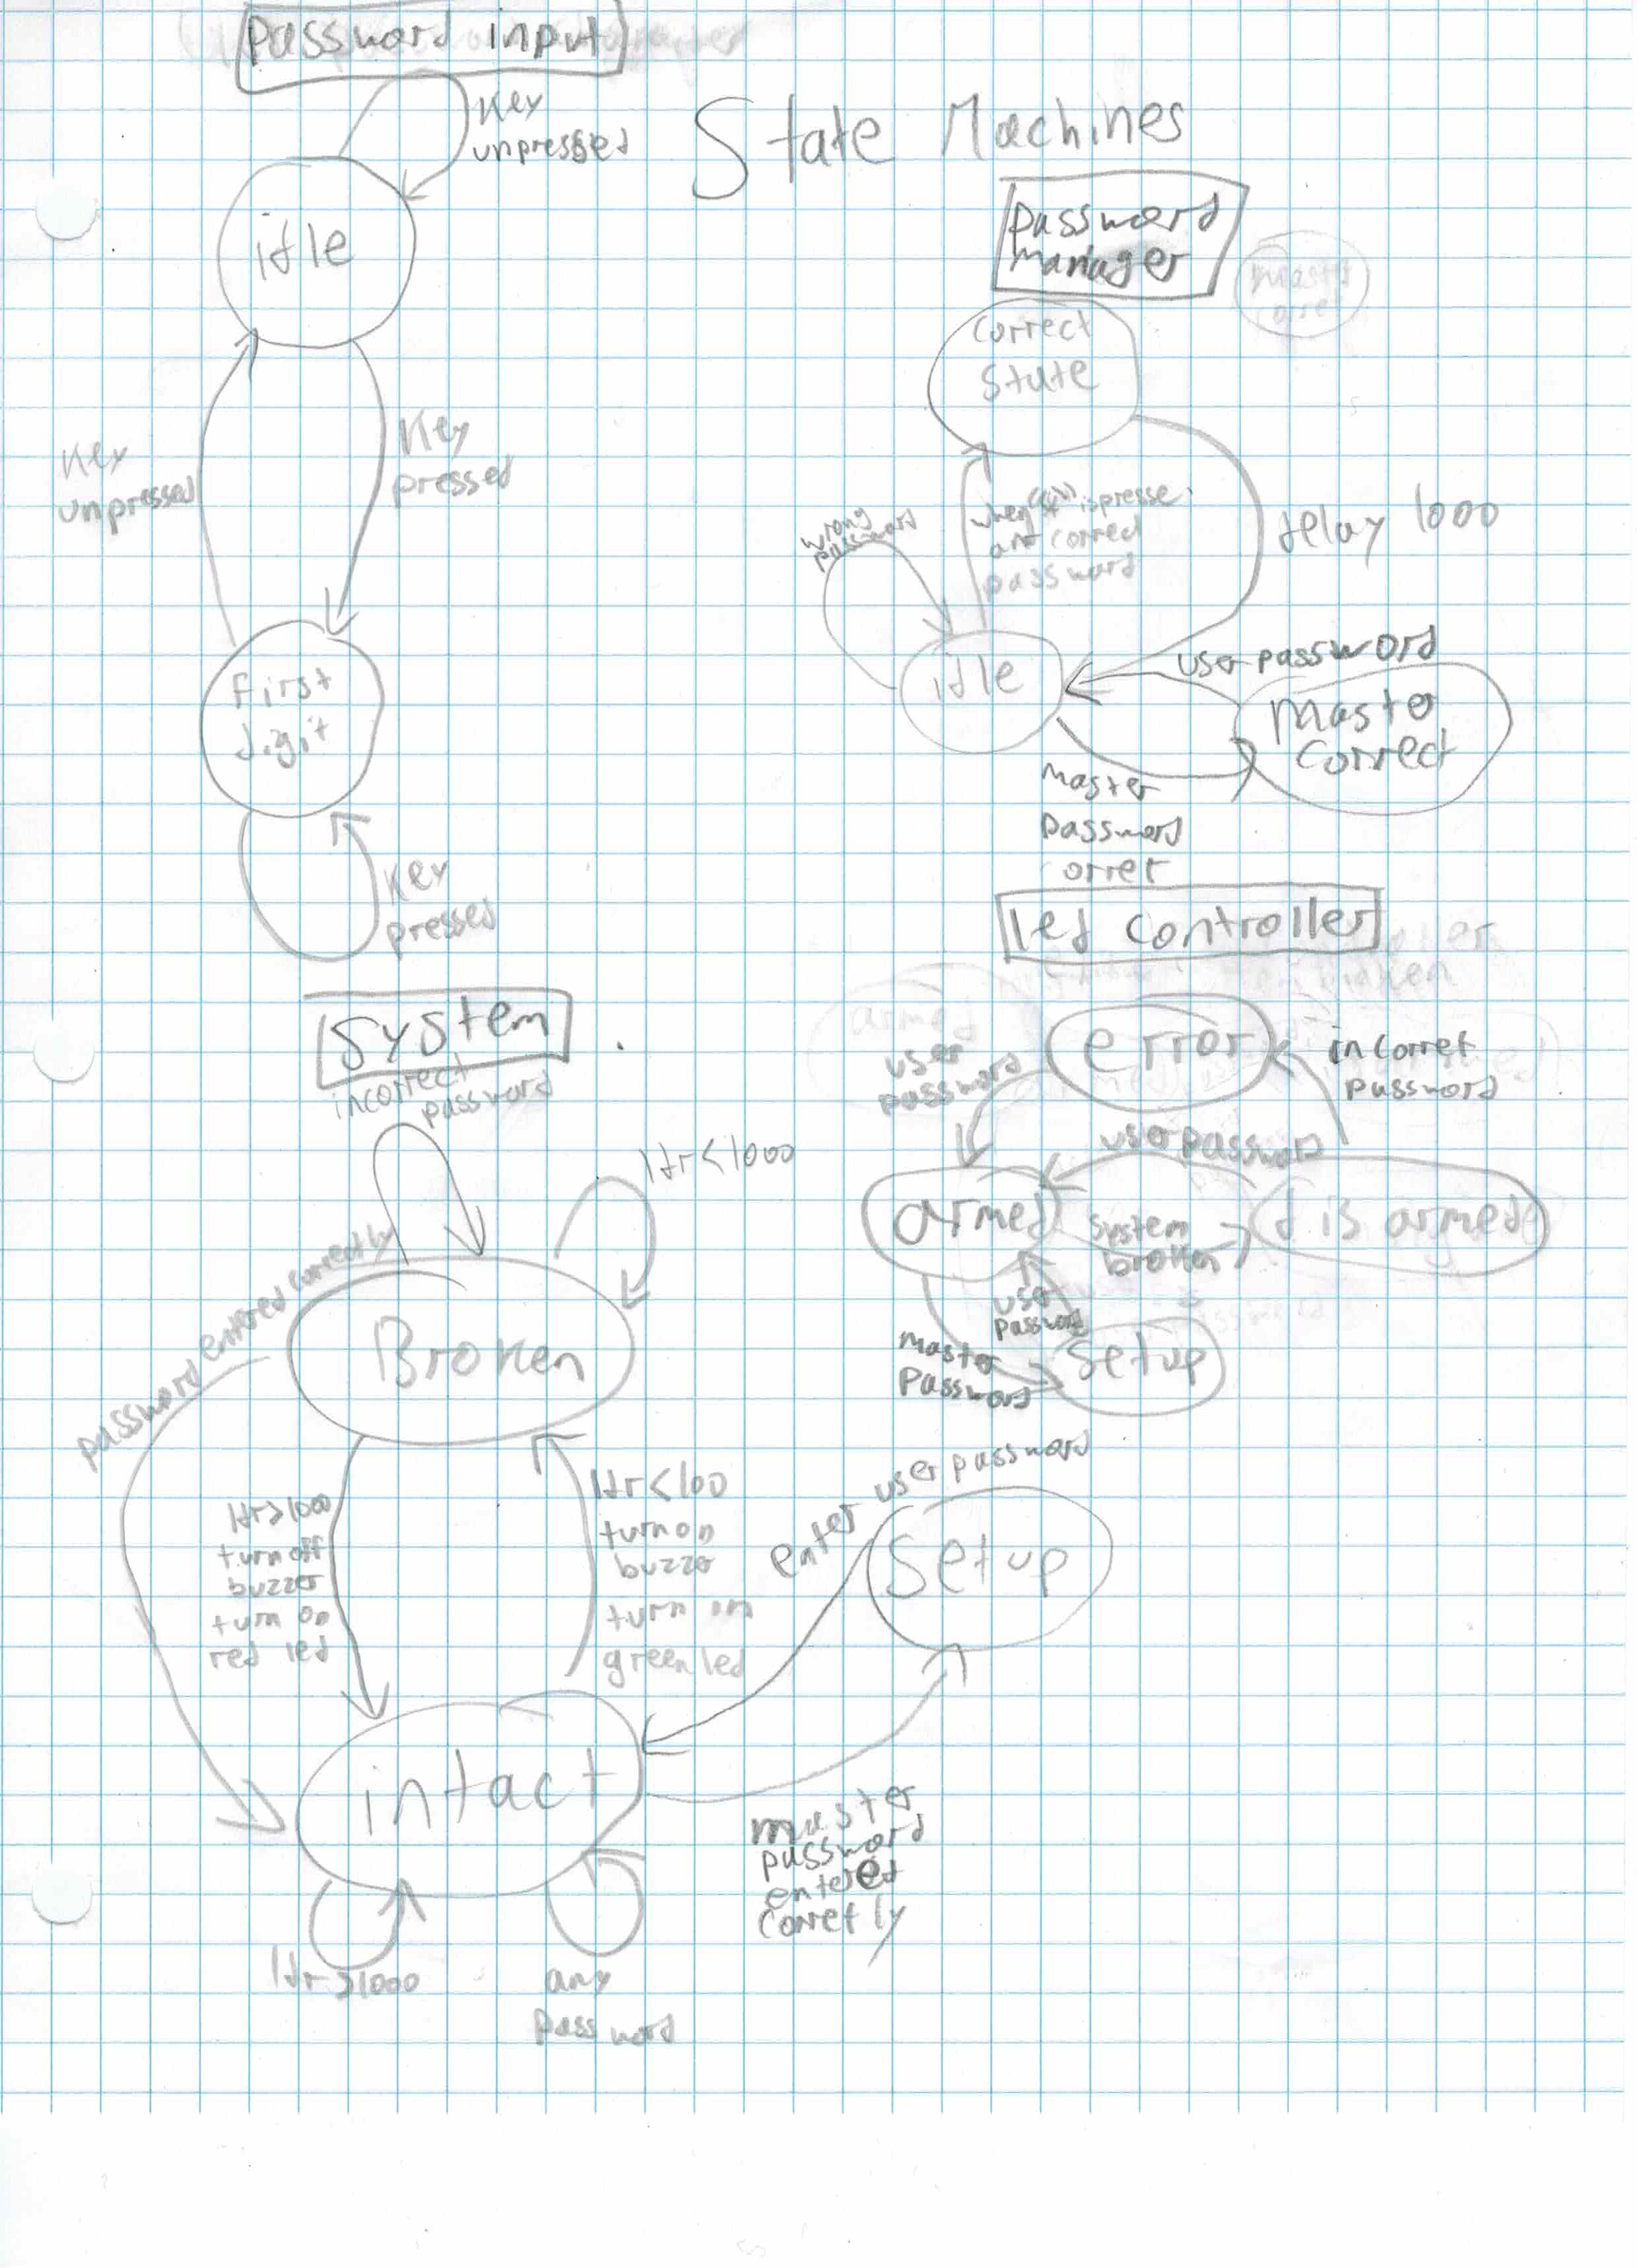 password input
State Machines
Key
unpressed
idle
Key
unpressed
Key
pressed
First
digit
Key
pressed
password
manager
Correct
State
wrong
password
and correct
password
delay 1000
idle
user password
Master
Correct
Master
password
orret
led controller
error
incorret
password
user
password
user password
armed
system
broken
disarmed
user
password
Master
Password
Setup
System
incorrect
password
ldr<1000
password entered correctly
Broken
ldr>1000
turn off
buzzer
turn on
red led
ldr<100
turn on
buzzer
turn on
green led
enter user password
Setup
intact
master
password
entered
corretly
ldr>1000
any
password